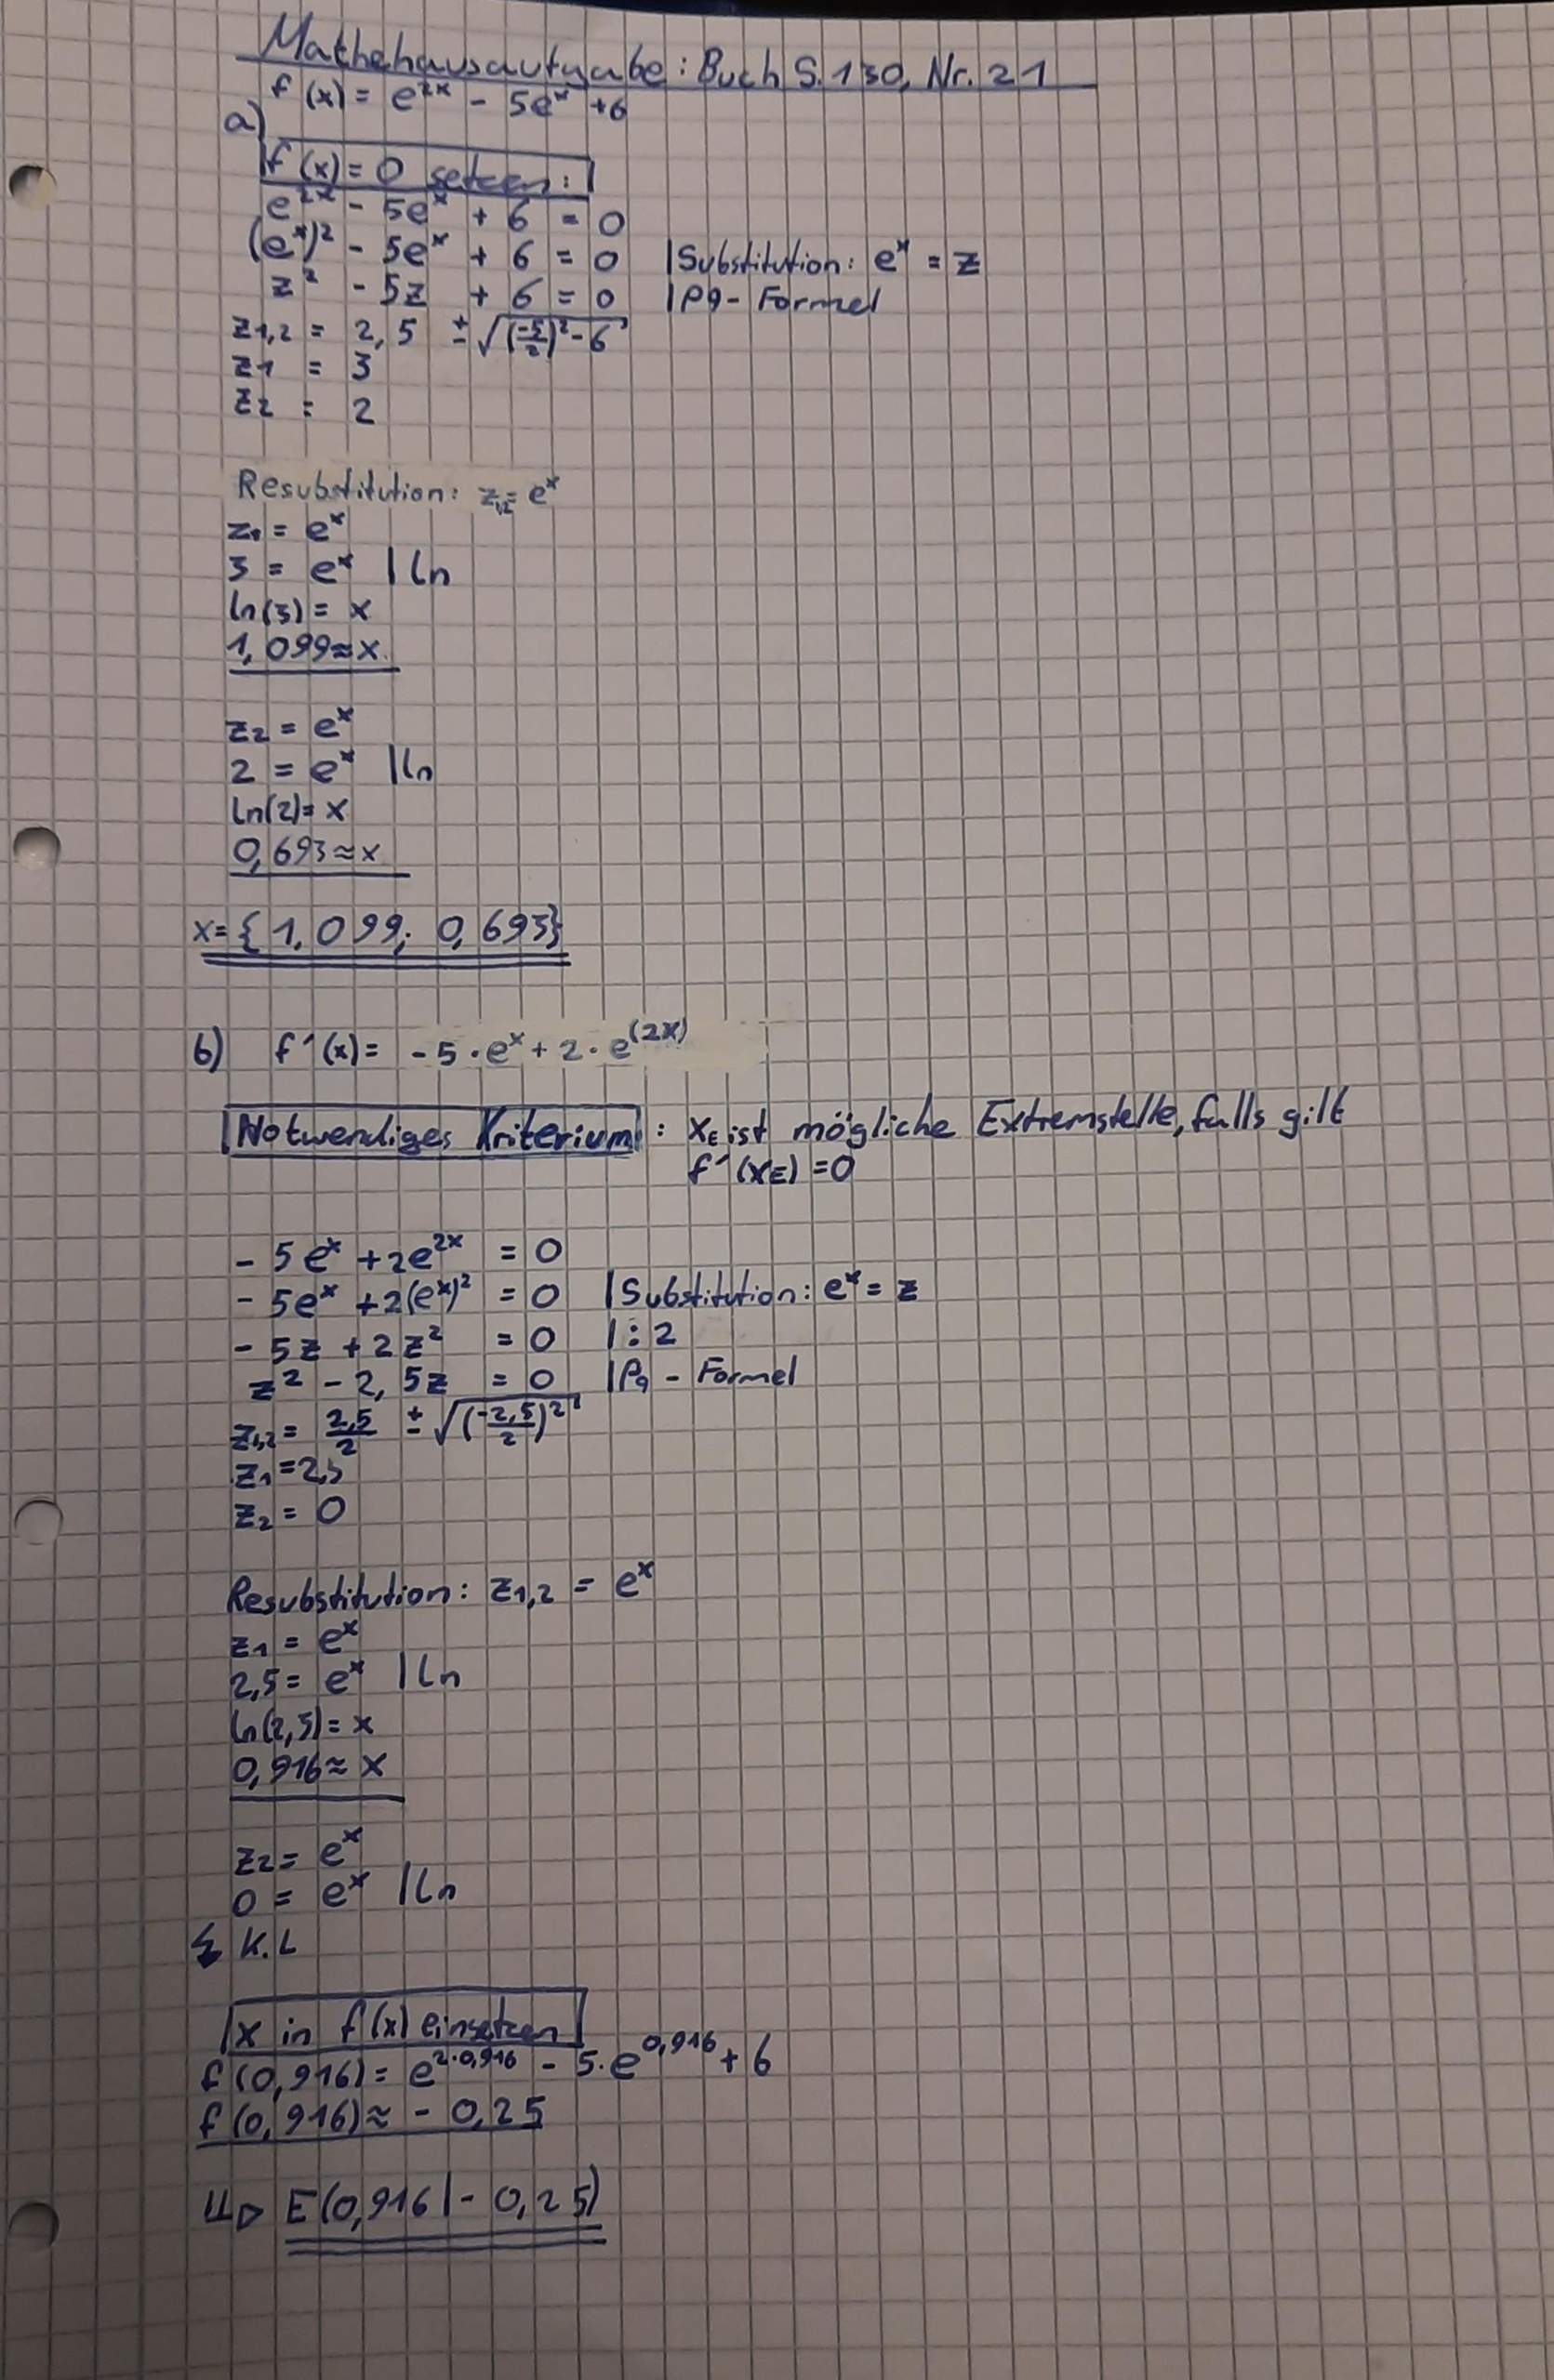 Mathehausaufgabe: Buch S.130, Nr. 21
f(x) = e^2x - 5e^x + 6
a)
f(x) = 0 setzen:
e^2x - 5e^x + 6 = 0
(e^x)² - 5e^x + 6 = 0 | Substitution: e^x = z
z² - 5z + 6 = 0 | pq-Formel
z1,2 = 2,5 ± √((-5/2)² - 6)
z1 = 3
z2 = 2
Resubstitution: z1,2 = e^x
z1 = e^x
3 = e^x | ln
ln(3) = x
1,099 ≈ x
z2 = e^x
2 = e^x | ln
ln(2) = x
0,693 ≈ x
x = {1,099; 0,693}
b) f´(x) = -5 · e^x + 2 · e^(2x)
Notwendiges Kriterium: xE ist mögliche Extremstelle, falls gilt
f´(xE) = 0
-5e^x + 2e^2x = 0
-5e^x + 2(e^x)² = 0 | Substitution: e^x = z
-5z + 2z² = 0 | : 2
z² - 2,5z = 0 | Pq - Formel
z1,2 = 2,5/2 ± √((-2,5/2)²)
z1 = 2,5
z2 = 0
Resubstitution: z1,2 = e^x
z1 = e^x
2,5 = e^x | ln
ln(2,5) = x
0,916 ≈ x
z2 = e^x
0 = e^x | ln
↯ K.L
x in f(x) einsetzen
f(0,916) = e^2·0,916 - 5·e^0,916 + 6
f(0,916) ≈ - 0,25
⇒ E(0,916 | - 0,25)